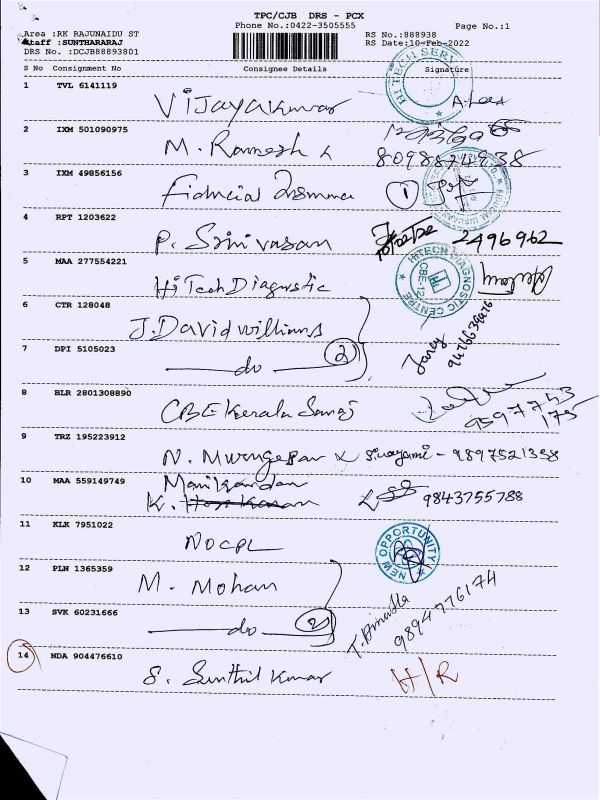 TPC/CJB DRS - PCX
Phone No.:0422-3505555
Page No.:1
Area :RK RAJUNAIDU ST
RS No.:888938
Staff :SUNTHARARAJ
RS Date:10-Feb-2022
DRS No. :DCJB88893801
S No Consignment No Consignee Details Signature
1 TVL 6141119 Vijayakumar
HITECH SERV
2 IXM 501090975 M. Ramesh
3 IXM 49856156
1
4 RPT 1203622 P. Srinivasan 2496962
5 MAA 277554221 HiTech Diagnostic
HITECH DIAGNOSTIC CENTRE
CBE-12
6 CTR 128048 J. David williams
7 DPI 5105023 do 2
Jancy
8 BLR 2801308890 CBE Kerala
9597743
175
9 TRZ 195223912 N. Murugesan - 9897521358
10 MAA 559149749 Manikandan
K. 9843755788
11 KLK 7951022 NOCPL
NEW OPPORTUNITY
12 PLN 1365359 M. Mohan
13 SVK 60231666 do 2
9894776174
14 NDA 904476610 S. Sunthil Kumar H/R